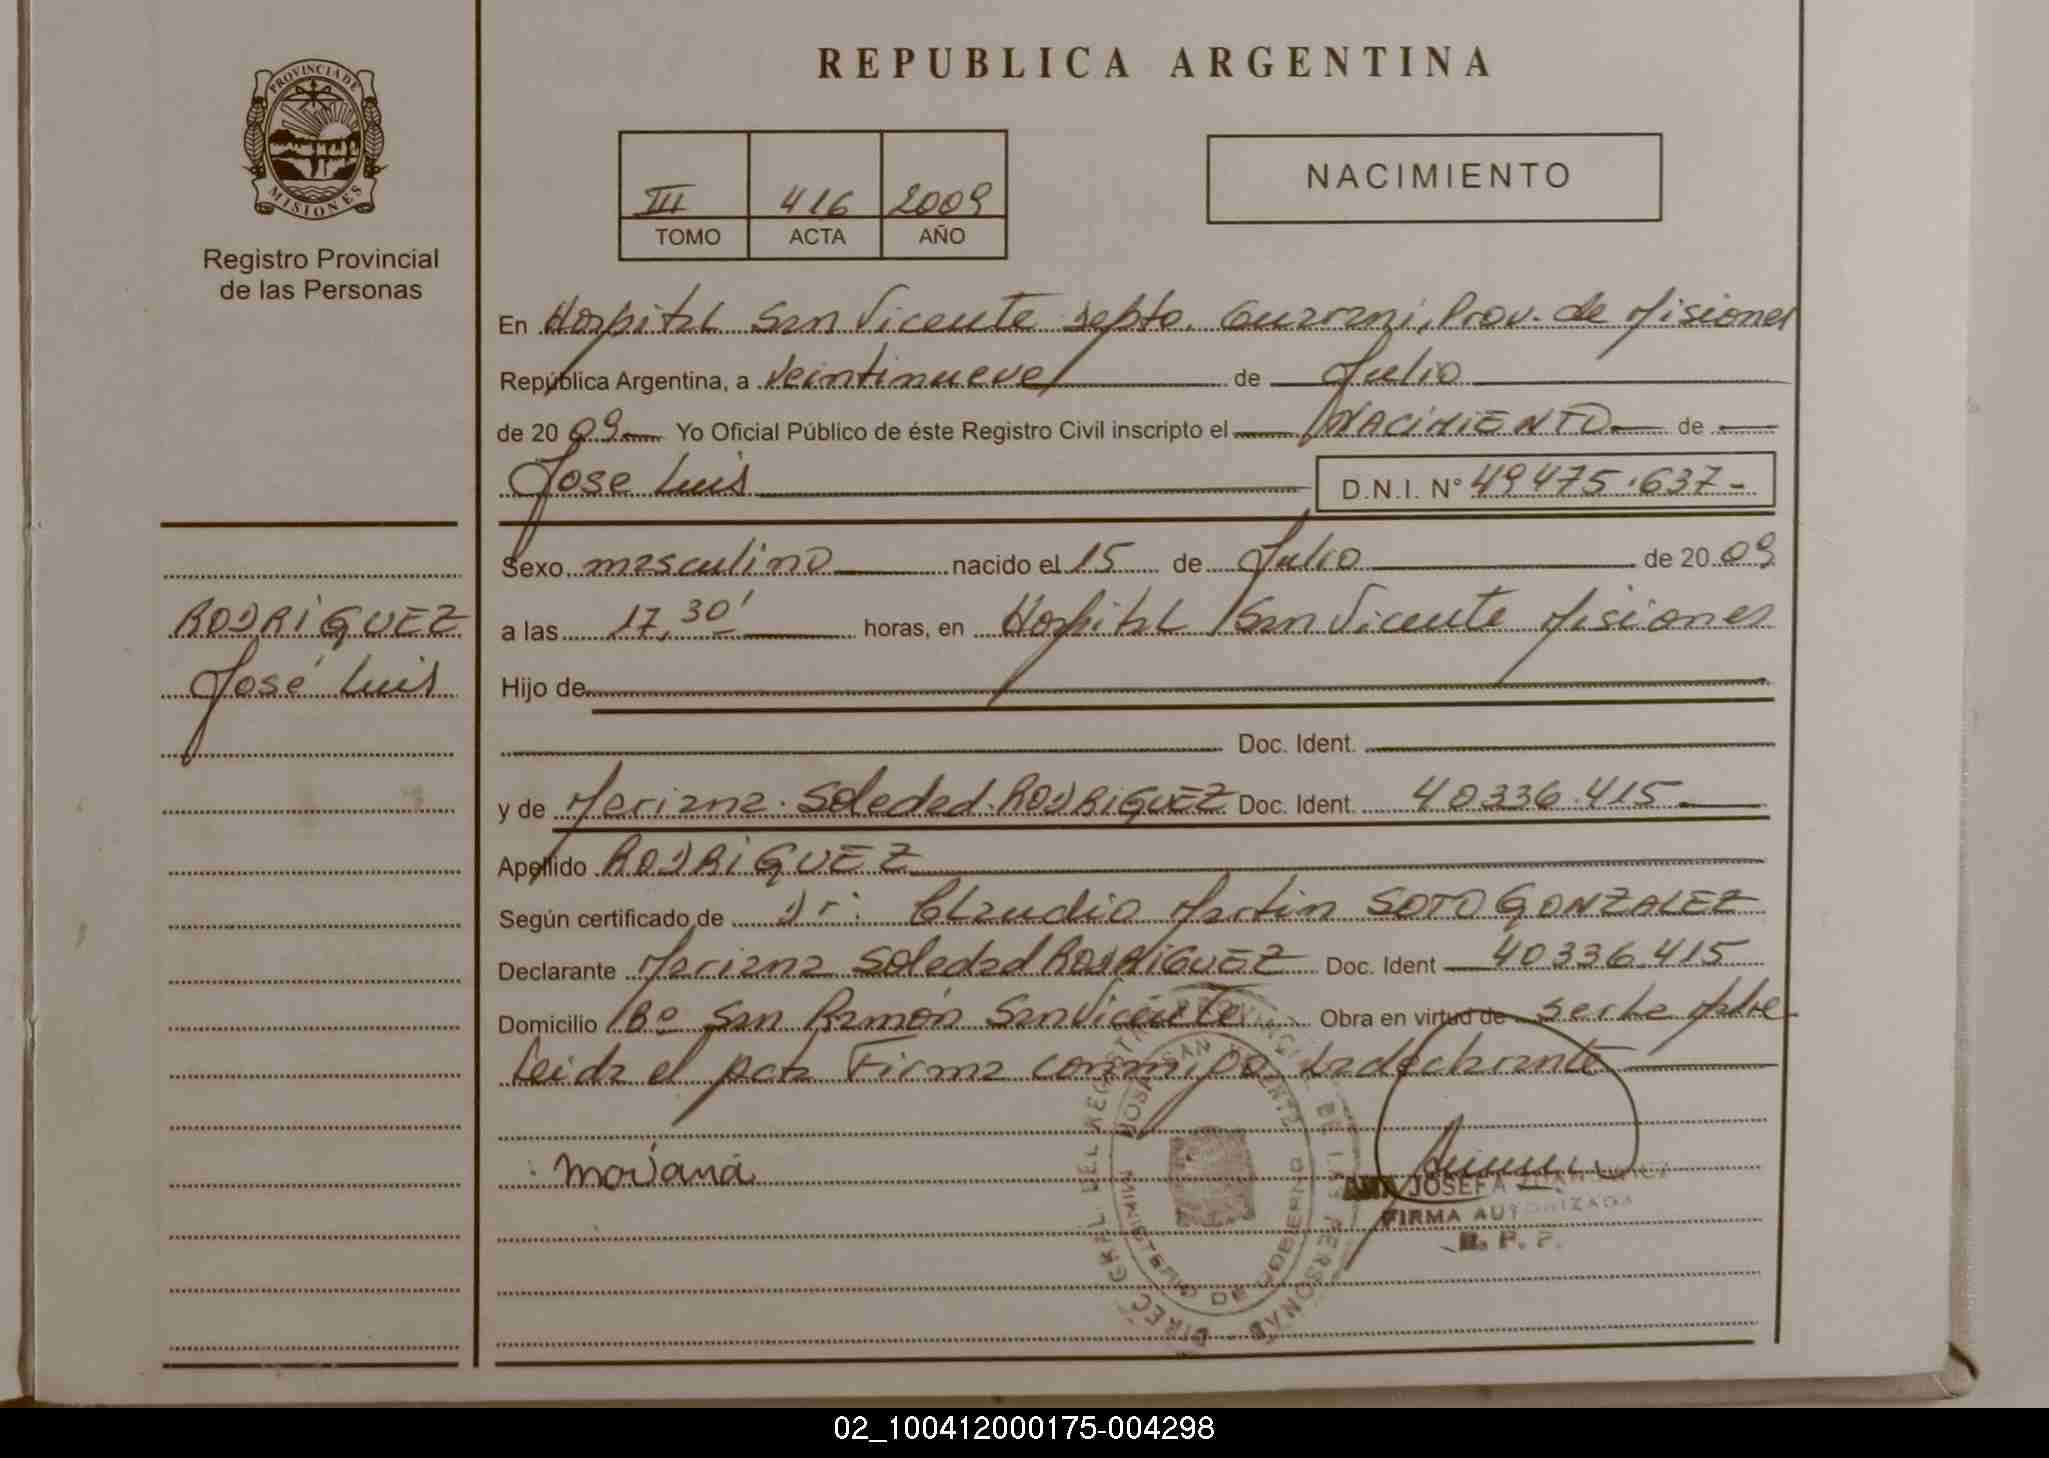 PROVINCIA DE
MISIONES
Registro Provincial
de las Personas
RODRIGUEZ
José Luis
REPUBLICA ARGENTINA
III 416 2009
TOMO ACTA AÑO
NACIMIENTO
En Hospital San Vicente Depto. Guarani, Prov. de Misiones
República Argentina, a veintinueve de Julio
de 2009 Yo Oficial Público de éste Registro Civil inscripto el NACIMIENTO de
Jose Luis D.N.I. N° 49475.637-
Sexo masculino nacido el 15 de Julio de 2009
a las 17,30' horas, en Hospital San Vicente Misiones
Hijo de
Doc. Ident.
y de Mariana Soledad RODRIGUEZ Doc. Ident. 40336.415
Apellido RODRIGUEZ
Según certificado de Dr: Claudio Martin SOTO GONZALEZ
Declarante Mariana Soledad RODRIGUEZ Doc. Ident 40336.415
Domicilio B° San Ramón San Vicente Obra en virtud de ser la Madre
Leida el acta Firma conmigo La declarante
DIREC. GRAL. DEL REGISTRO PROVINCIAL DE LAS PERSONAS
HOSP. SAN VICENTE
MINISTERIO DE GOBIERNO
ANA JOSEFA
FIRMA AUTORIZADA
R. P. P.
02_100412000175-004298